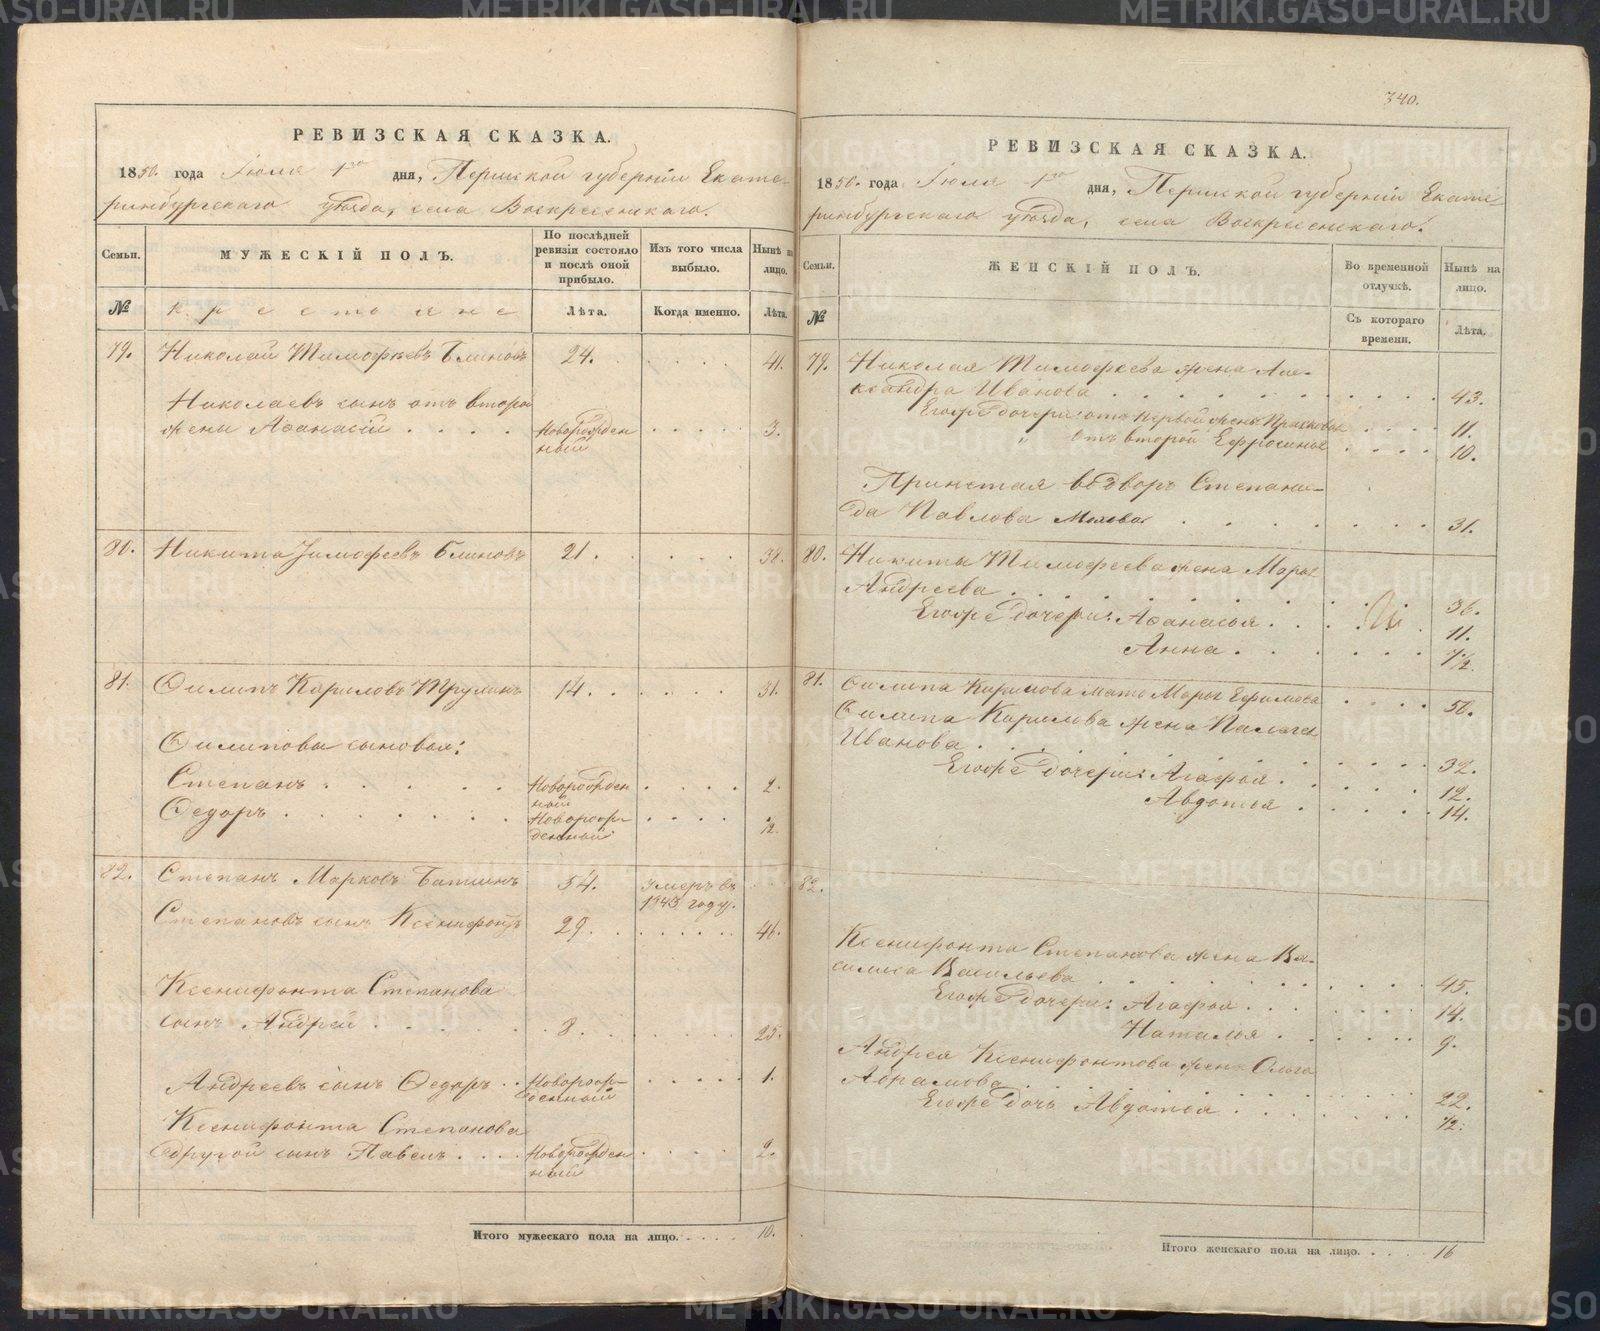 340.
РЕВИЗСКАЯ СКАЗКА.
1850. года Іюля 1го дня, Пермской губерніи Екате-
ринбургскаго уѣзда, села Воскресенскаго.
Семьи.
МУЖЕСКІЙ ПОЛЪ.
По послѣдней ревизіи состояло и послѣ оной прибыло.
Изъ того числа выбыло.
Нынѣ на лицо.
№
крестьяне
Лѣта.
Когда именно.
Лѣта.
79. Николай Тимофѣевъ Блиновъ 24. 41.
Николаевъ сынъ отъ второй
жены Афанасій . . . . Новорожден 3.
ный
80. Никита Тимофеевъ Блиновъ 21. 38.
81. Филипъ Кириловъ Трулинъ 14. 31.
Филиповы сыновья:
Степанъ . . . . . Новорожден 2.
ный
Федоръ . . . . . . Новорож- 1/2.
денный
82. Степанъ Марковъ 54. умеръ въ
1843 году.
Степановъ сынъ Ксенифонтъ 29. 46.
Ксенифонта Степанова
сынъ Андрей . . . . . 8. 25.
Андреевъ сынъ Федоръ . . Новорож- 1.
денный
Ксенифонта Степанова
другой сынъ Павелъ . . . . Новорожден 2.
ный
Итого мужескаго пола на лицо. . . . . 10.
РЕВИЗСКАЯ СКАЗКА.
1850. года Іюля 1го дня, Пермской губерніи Екате-
ринбургскаго уѣзда, села Воскресенскаго.
Семьи.
ЖЕНСКІЙ ПОЛЪ.
Во временной отлучкѣ.
Нынѣ на лицо.
№
Съ котораго времени.
Лѣта.
79. Николая Тимофѣева жена Але-
ксандра Иванова 43.
Егожъ дочери: отъ первой жены Прасковья 11.
" отъ второй Ефросинья 10.
Принятая во дворъ Степани-
да Павлова 31.
80. Никиты Тимофеева жена Марья
Андреева 36.
Егожъ дочери: Афанасья 11.
Анна 7 1/2
81. Филипа Кирилова мать Марья Ефимова 50.
Филипа Кирилова жена Палагея
Иванова 32.
Егожъ дочери: Агафья 12.
Авдотья 14.
82.
Ксенифонта Степанова жена Ва-
силиса Васильева 45.
Егожъ дочери: Агафья 14.
Наталья 9.
Андрея Ксенифонтова жена Ольга
Абрамова 22.
Егожъ дочь Авдотья 1/2.
Итого женскаго пола на лицо. . . . . 16
METRIKI.GASO-URAL.RU